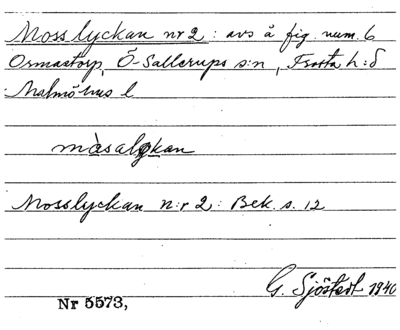 Mosslyckan nr 2: avs å fig. num. 6
Ormastorp, Ö-Sallerups s:n, Frosta h:d
Malmöhus l
måsalykan
Mosslyckan n:r 2: Bek. s. 12
G. Sjöstedt 1940
Nr 5573,